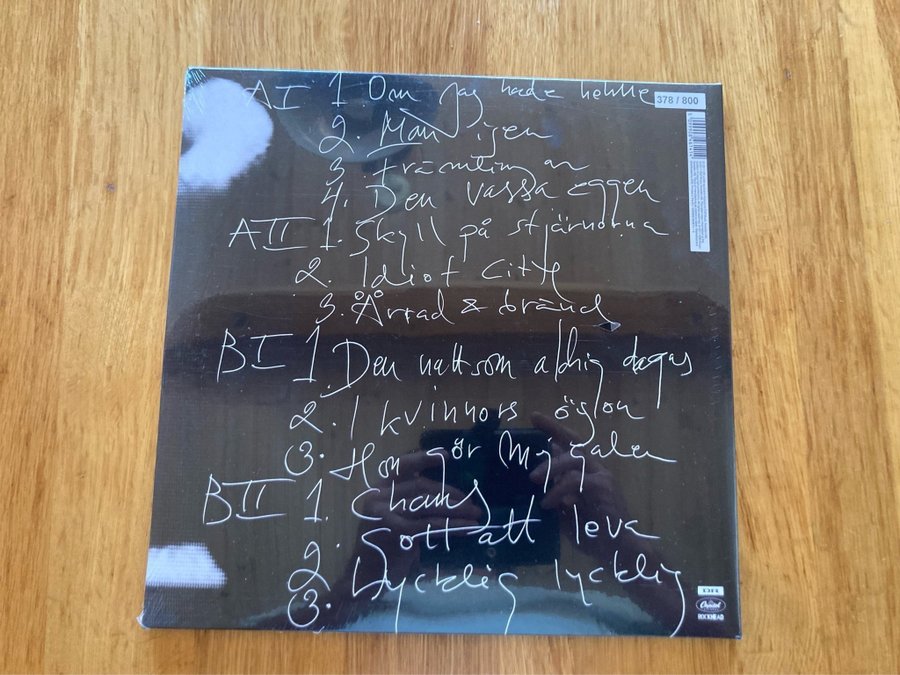 AI 1 Om jag hade henne
378 / 800
2. Män igen
3. främlingar
4. Den vassa eggen
AII 1. Skyll på stjärnorna
2. Idiot city
3. Ärrad & bränd
BI 1. Den natt som aldrig dagas
2. I kvinnors ögon
3. Hon gör mig galen
BII 1. Chans
2. Gott att leva
3. Lycklig lycklig
EMI
Capitol
ROCKHEAD